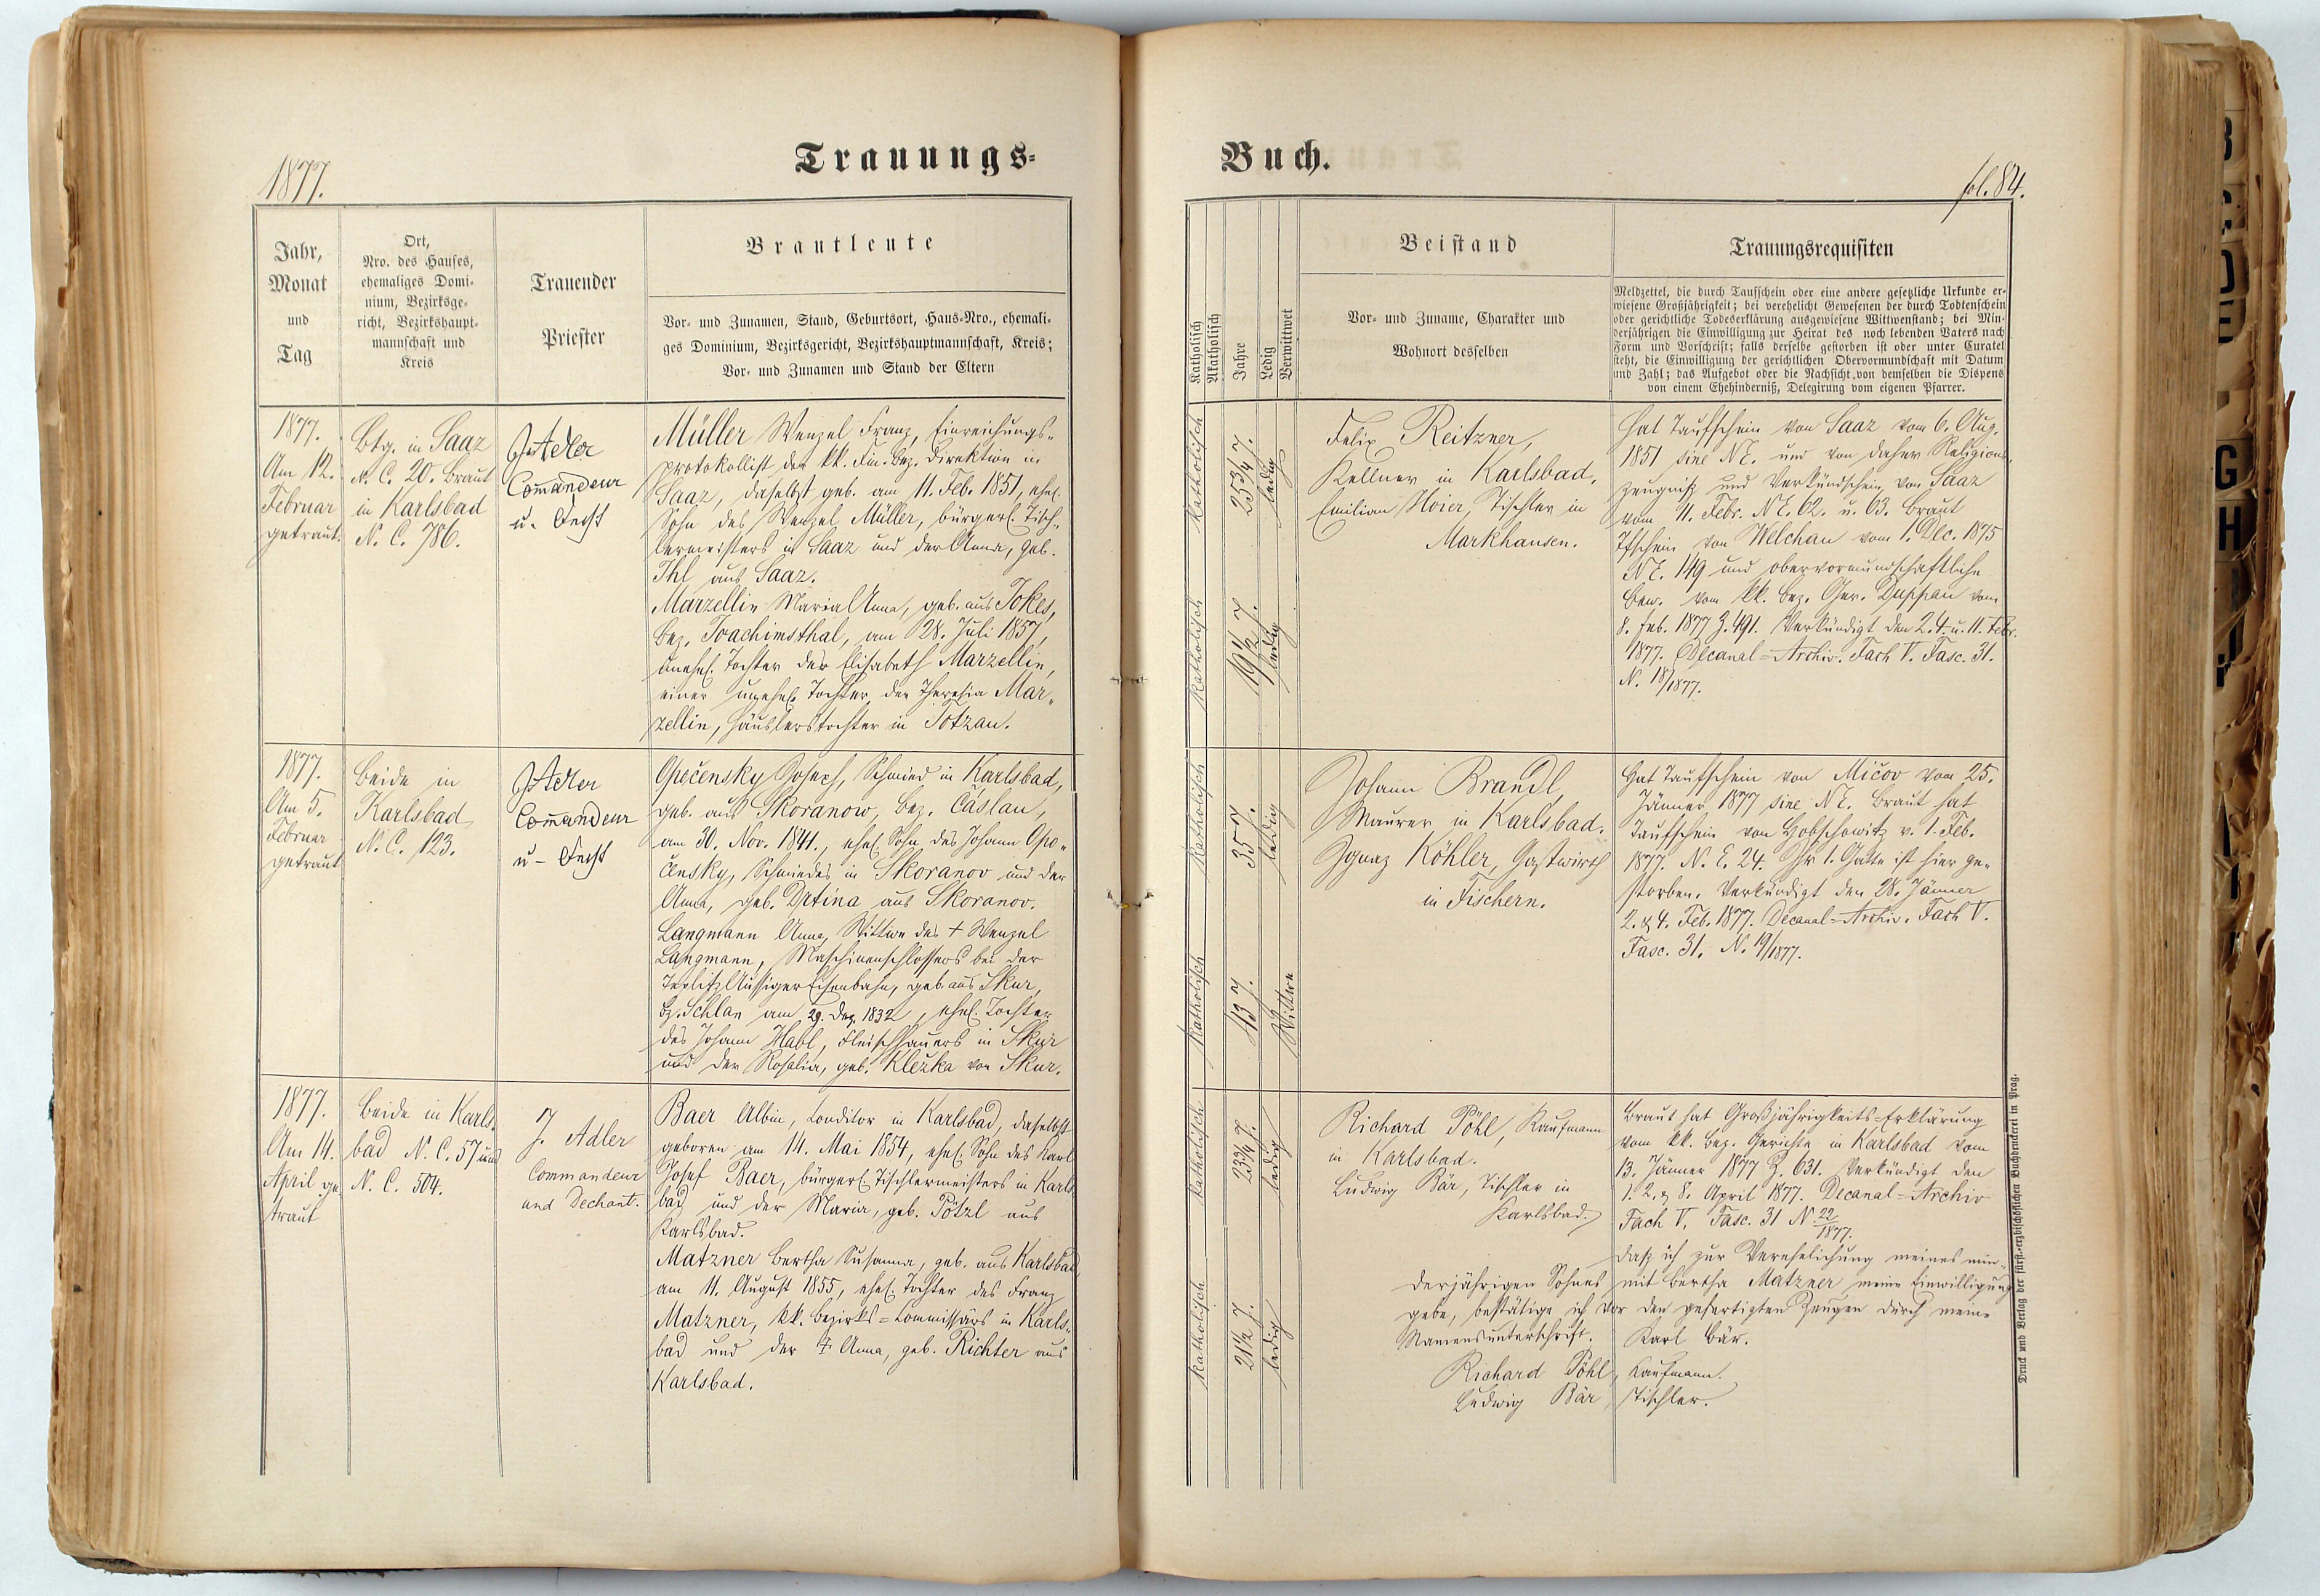 1877.
Trauungs=
Jahr,
Monat
und
Tag
Ort,
Nro. des Hauses,
ehemaliges Domi-
nium, Bezirksge-
richt, Bezirkshaupt-
mannschaft und
Kreis
Trauender
Priester
Brautleute
Vor- und Zunamen, Stand, Geburtsort, Haus-Nro., ehemali-
ges Dominium, Bezirksgericht, Bezirkshauptmannschaft, Kreis;
Vor- und Zunamen und Stand der Eltern
1877.
Am 12.
Februar
getraut.
Btg. in Saaz
N. C. 20. Braut
in Karlsbad
N. C. 786.
J Adler
Com̄andeur
u.
Müller Wenzel Franz, Einreichungs-
protokollist der kk. Fin. Bez. Direktion in
Saaz, daselbst geb. am 11. Feb. 1851, ehel.
Sohn des Wenzel Müller, bürgerl. Tisch-
lermeisters in Saaz und der Anna, geb.
Ihl aus Saaz.
Marzellin Maria Anna, geb. aus Jokes,
Bez. Joachimsthal, am 28. Juli 1857,
unehel. Tochter der Elisabeth Marzellin,
einer unehel. Tochter der Theresia Mar-
zellin, Häuslerstochter in Totzau.
1877.
Am 5.
Februar
getraut
Beide in
Karlsbad
N. C. 123.
J Adler
Com̄andeur
u-
Opečensky Joseph, Schmied in Karlsbad,
geb. aus Skoranow, Bez. Čáslau,
am 30. Nov. 1841., ehel. Sohn des Johann Opo-
čensky, Schmiedes in Skoranov und der
Anna, geb. Drtina aus Skoranov.
Langmann Anna, Wittwe des + Wenzel
Langmann, Maschinenschlossers bei der
Teplitz Aussiger Eisenbahn, geb. aus Skur,
Bz. Schlan am 29. Dez. 1832, ehel. Tochter
des Johann Habl, Fleischhauers in Skur
und der Rosalia, geb. Kležka von Skur.
1877.
Am 14.
April ge-
traut
Beide in Karls-
bad N. C. 57 und
N. C. 504.
J. Adler
Commandeur
und Dechant.
Baer Albin, Conditor in Karlsbad, daselbst
geboren am 14. Mai 1854, ehel. Sohn des Karl
Josef Baer, bürgerl. Tischlermeisters in Karls-
bad und der Maria, geb. Pötzl aus
Karlsbad.
Matzner Bertha Susanna, geb. aus Karlsbad
am 11. August 1855, ehel. Tochter des Franz
Matzner, kk. Bezirks=Commissärs in Karls-
bad und der + Anna, geb. Richter aus
Karlsbad.
Buch.
fol. 84.
Katholisch
Akatholisch
Jahre
Ledig
Verwittwet
Beistand
Vor- und Zuname, Charakter und
Wohnort desselben
Trauungsrequisiten
Meldzettel, die durch Taufschein oder eine andere gesetzliche Urkunde er-
wiesene Großjährigkeit; bei verehelicht Gewesenen der durch Todtenschein
oder gerichtliche Todeserklärung ausgewiesene Wittwenstand; bei Min-
derjährigen die Einwilligung zur Heirat des noch lebenden Vaters nach
Form und Vorschrift; falls derselbe gestorben ist oder unter Curatel
steht, die Einwilligung der gerichtlichen Obervormundschaft mit Datum
und Zahl; das Aufgebot oder die Nachsicht von demselben die Dispens
von einem Ehehinderniß, Delegirung vom eigenen Pfarrer.
Katholisch
25 3/4 J.
ledig
Katholisch
19 1/2 J.
ledig
Felix Reitzner,
Kellner in Karlsbad.
Emilian Hoier, Tischler in
Markhausen.
Hat Taufschein von Saaz vom 6. Aug.
1851 sine NE. und von daher Religions-
zeugniß und Verkündschein von Saaz
vom 11. Febr. NE. 62. u. 63. Braut
Tfschein von Welchau vom 1. Dec. 1875
NE. 149 und obervormundschaftliche
Bew. vom kk. Bez. Ger. Duppau vom
8. Feb. 1877 Z. 491. Verkündigt den 2. 4. u. 11. Febr.
1877. Decanal=Archiv. Fach V. Fasc. 31.
N. 18/1877.
Katholisch
35 J.
ledig
Katholisch
43 J.
Wittwe
Johann Brandl,
Maurer in Karlsbad.
Ignaz Köhler, Gastwirth
in Fischern.
Hat Taufschein von Mičov vom 25.
Jänner 1877 sine NE. Braut hat
Taufschein von Hobschowitz v. 1. Feb.
1877. N. E. 24. Ihr 1. Gatte ist hier ge-
storben. Verkündigt den 28. Jänner
2. & 4. Feb. 1877. Decanal=Archiv. Fach V.
Fasc. 31. N. 19/1877.
Katholisch
23 J.
ledig
Katholisch
21 1/2 J.
ledig
Richard Pöhl, Kaufmann
in Karlsbad.
Ludwig Bär, Tischler in
Karlsbad.
Braut hat Großjährigkeits-Erklärung
vom kk. Bez. Gerichte in Karlsbad vom
13. Jänner 1877 Z. 631. Verkündigt den
1. 2. & 8. April 1877. Decanal=Archiv
Fach V. Fasc. 31 N 22/1877.
Daß ich zur Verehelichung meines min-
derjährigen Sohnes mit Bertha Matzner meine Einwilligung
gebe, bestätige ich vor den gefertigten Zeugen durch meine
Namensunterschrift. Karl Bär.
Richard Pöhl, Kaufmann.
Ludwig Bär, Tischler.
Druck und Verlag der fürst-erzbischöflichen Buchdruckerei in Prag.